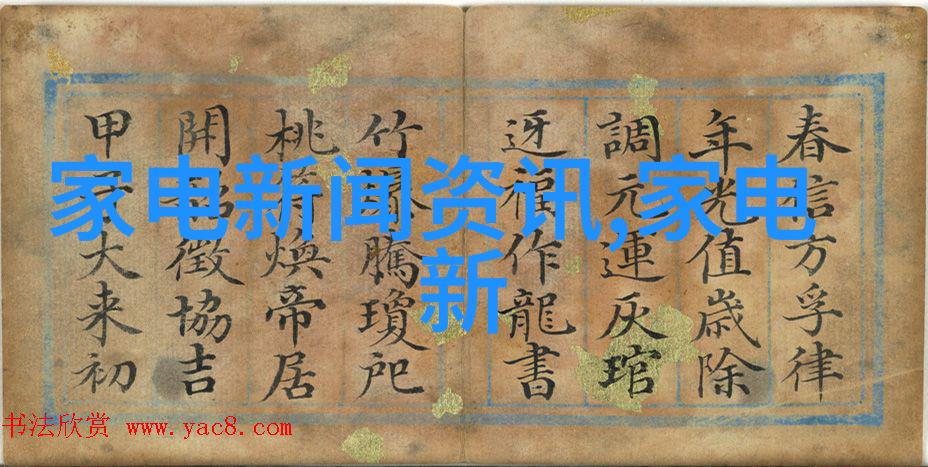 家电新闻资讯,家电
新
春信方孚律
年光值歲除
調元連灰琯
迓福作龍書
竹騰瓊
桃符煥帝居
開韶徵協吉
甲子大来初
书法欣赏 www.yac8.com